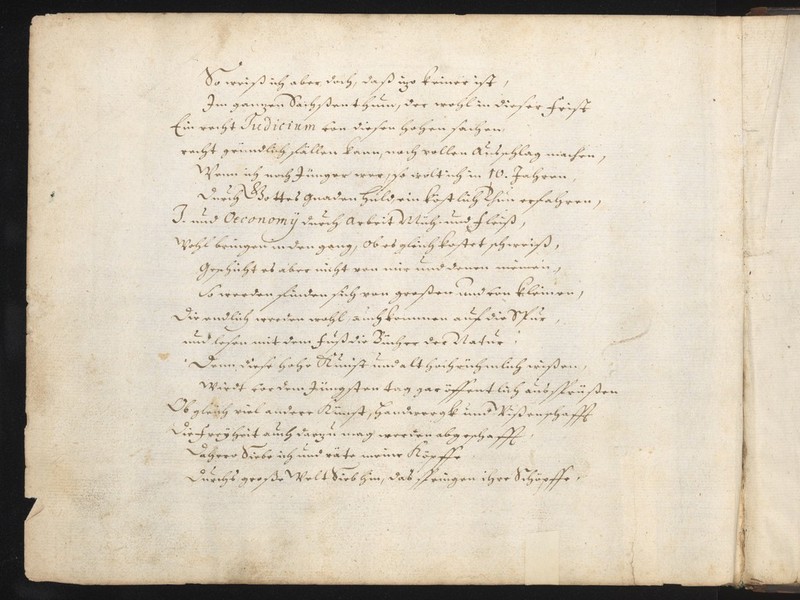 So weiß ich aber doch, daß itzo keiner ist,
Im gantzen Sachßenthum, der wohl in dieser Frist
Ein recht Judicium von diesen hohen sachen,
recht gründlich fällen kann, noch vollen Außschlag machen,
Wenn ich noch Jünger wer, so wolt ich in 10. Jahren,
Durch Gottes Gnaden Huld ein köstlich Thun erfahren,
J. und Oeconomÿ durch Arbeit Müh und Fleiß,
Wohl bringen in den gang, Ob es gleich kostet schweiß,
Geschicht es aber nicht von mir und denen meinen,
So werden finden sich von großen und von kleinen,
Die endlich werden wohl auch kommen auf die Spur,
und lesen mit dem Fuß die Bücher der Natur.
Denn diese hohe Kunst und alt hochrühmlich wißen,
Wirdt vor dem Jüngsten tag gar öffentlich außsprüßen
Ob gleich viel andere Kunst, Handwergk und Wißenschafft
Die Freÿheit auch darzu mag werden abgeschafft.
Dahero Siebe ich und meine Köpffe
Durchs große Welt Sieb hin, das springen ihre